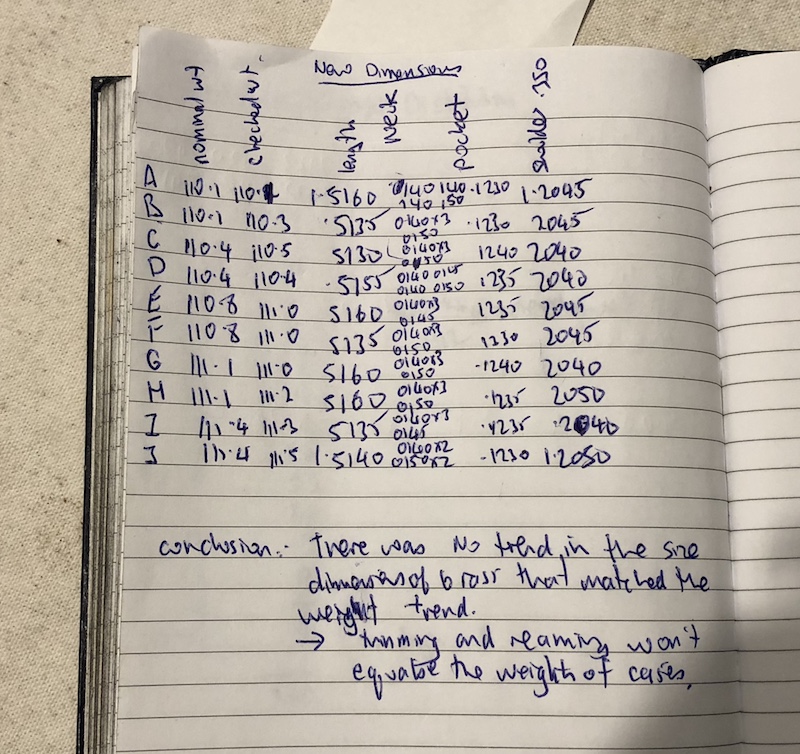 New Dimensions
nominal wt checked wt length neck pocket .350
A 110.1 1.5160 0140 140 .1230 1.2045
140 150
B 110.1 110.3 .5135 0140x3 .1230 2045
0150
C 110.4 110.5 5130 0140x3 1240 2040
0150
D 110.4 110.4 .5155 0140 0145 .1235 2040
0140 0150
E 110.8 111.0 5160 0140x3 1235 2045
0145
F 110.8 111.0 5135 0140x3 1230 2045
0150
G 111.1 111.0 5160 0140x3 .1240 2040
0150
H 111.1 111.2 5160 0140x3 .1235 2050
0150
I 111.4 111.3 5135 0140x3 .1235 .2040
0145
J 111.4 111.5 1.5140 0140x2 .1230 1.2050
0150x2
conclusion:- There was No trend in the size
dimensions of brass that matched the
weight trend.
→ trimming and reaming won't
equalise the weights of cases.